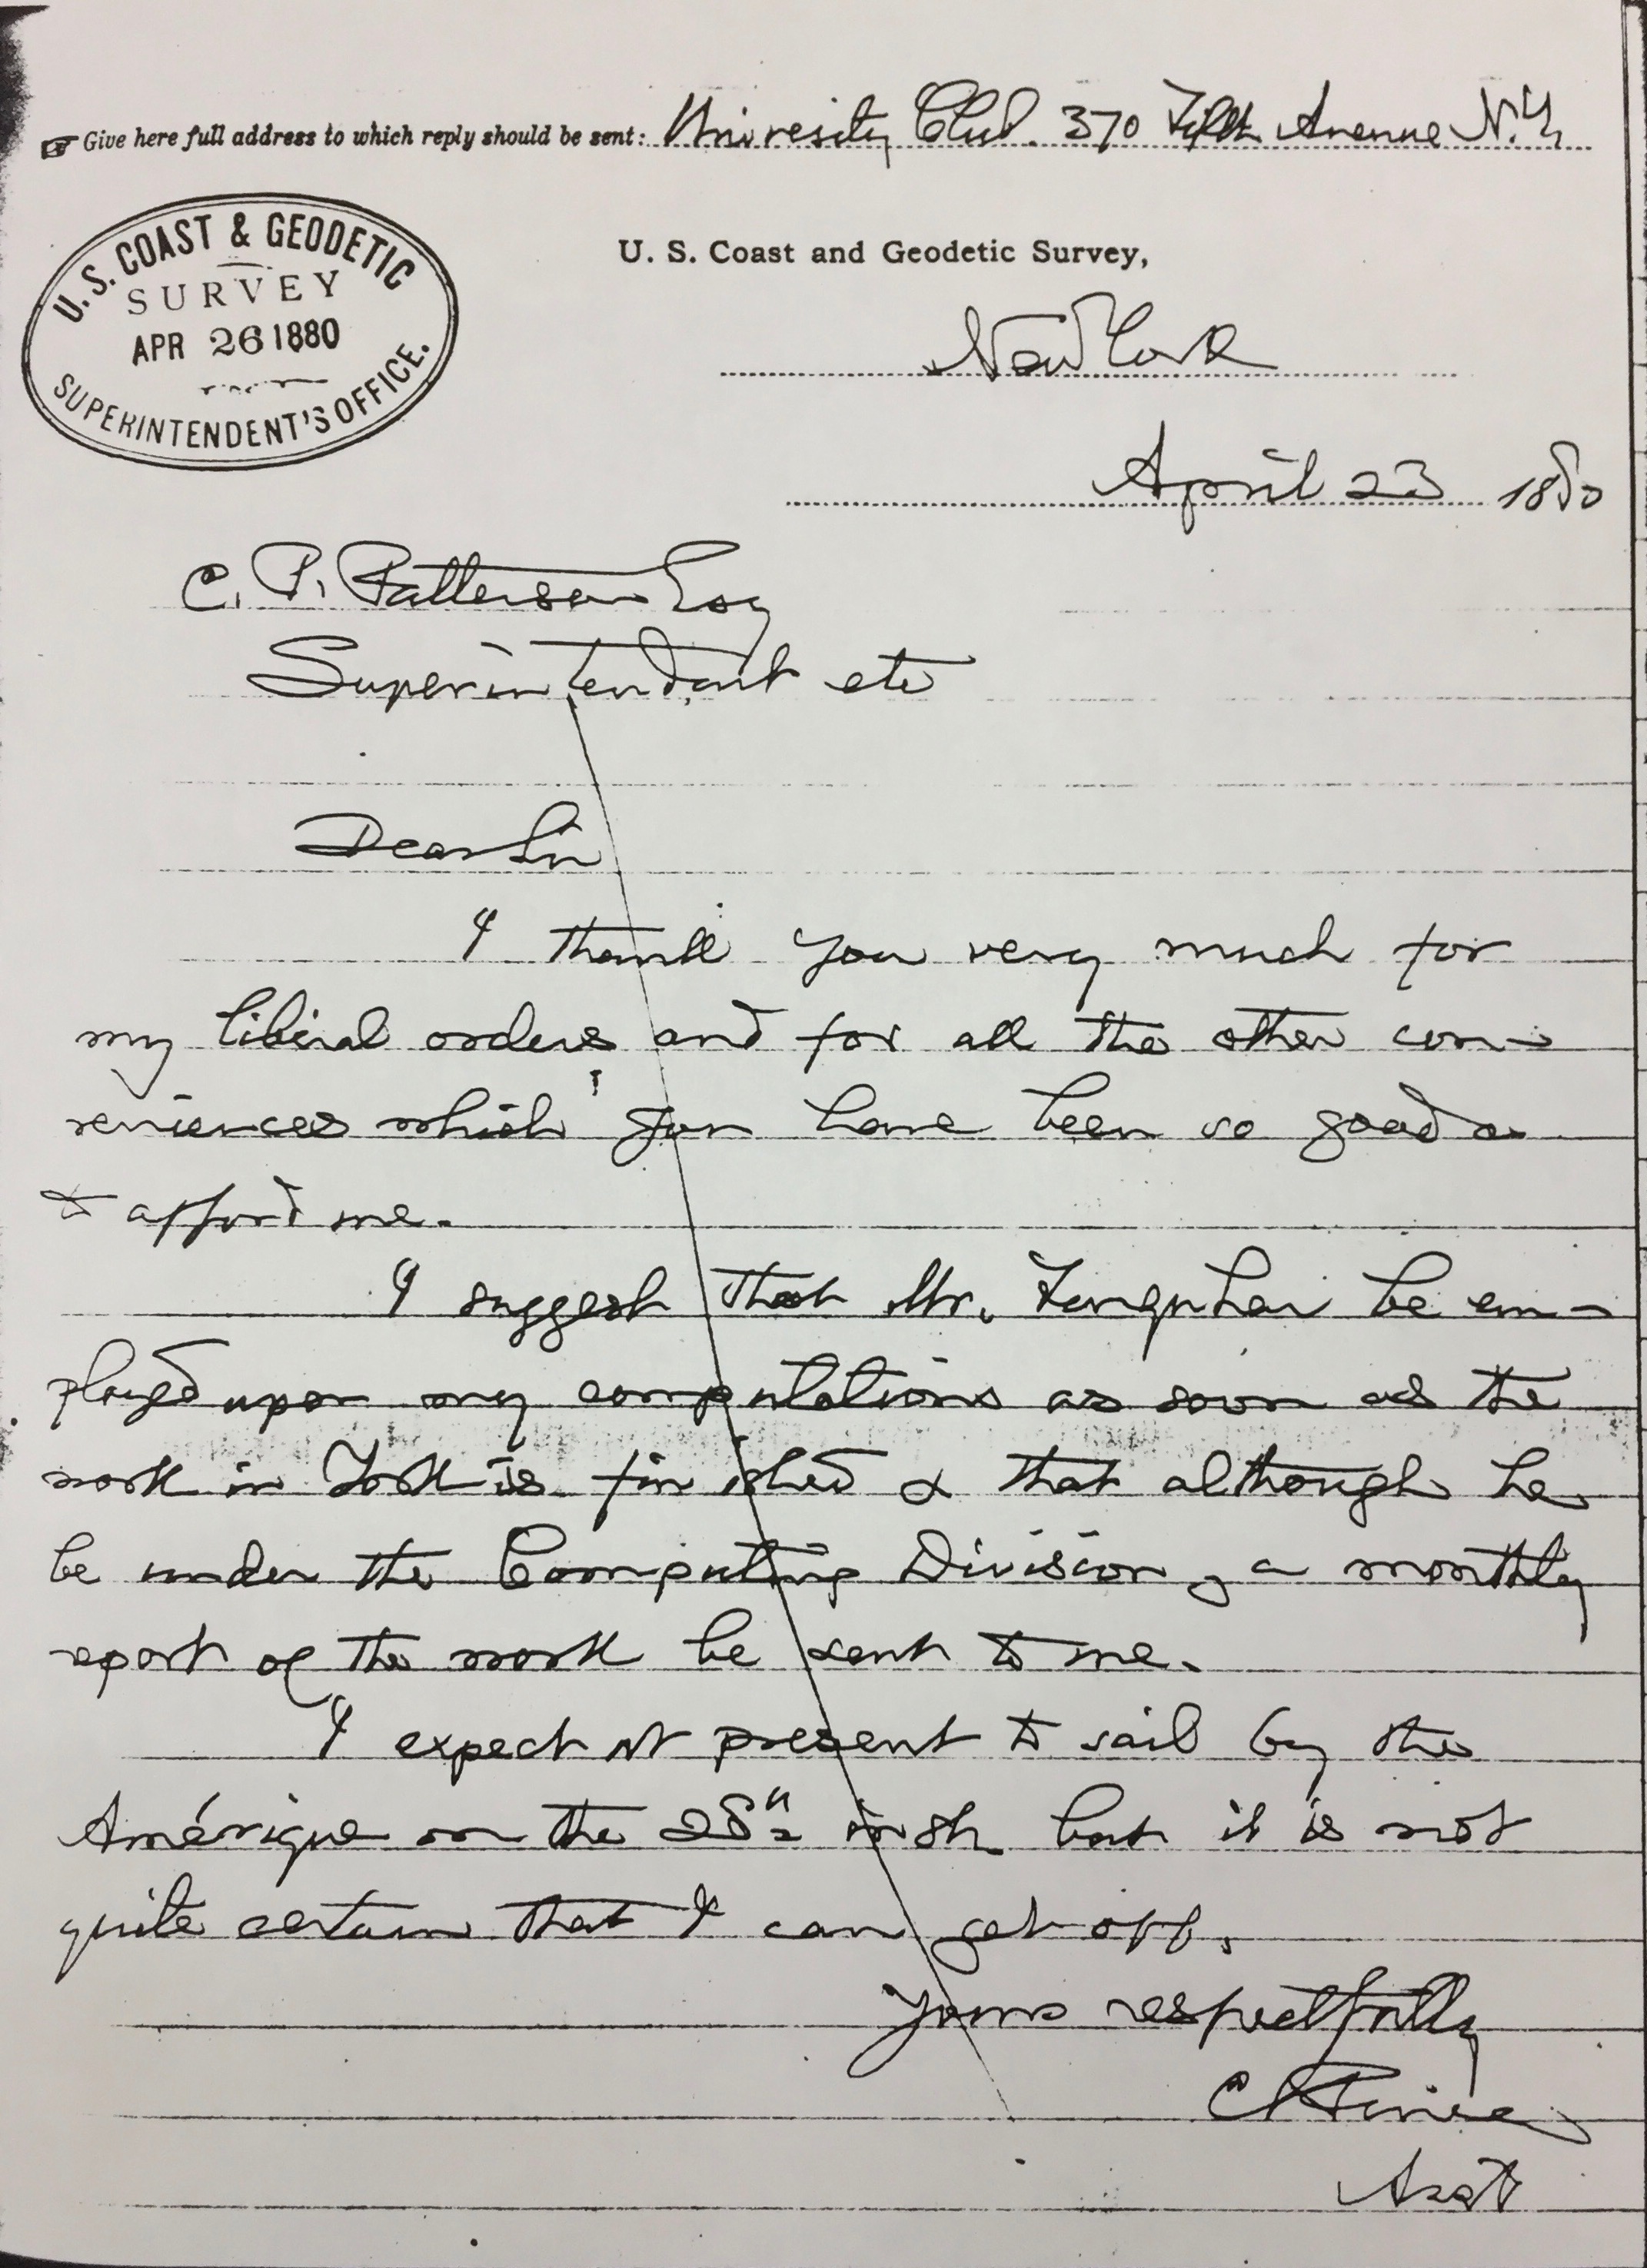 Give here full address to which reply should be sent: University Club. 370 Fifth Avenue N.Y.
U.S. COAST & GEODETIC
SURVEY
APR 26 1880
SUPERINTENDENT'S OFFICE.
U. S. Coast and Geodetic Survey,
New York
April 23 1880
C. P. Patterson Esq
Superintendent etc
Dear Sir
I thank you very much for
my liberal orders and for all the other con-
veniences which you have been so good as
to afford me.
I suggest that Mr. Farquhar be em-
ployed upon my computations as soon as the
work in York is finished & that although he
be under the Computing Division, a monthly
report of the work be sent to me.
I expect at present to sail by the
Amérique on the 28th inst. but it is not
quite certain that I can get off.
Yours respectfully
CSPeirce
Asst